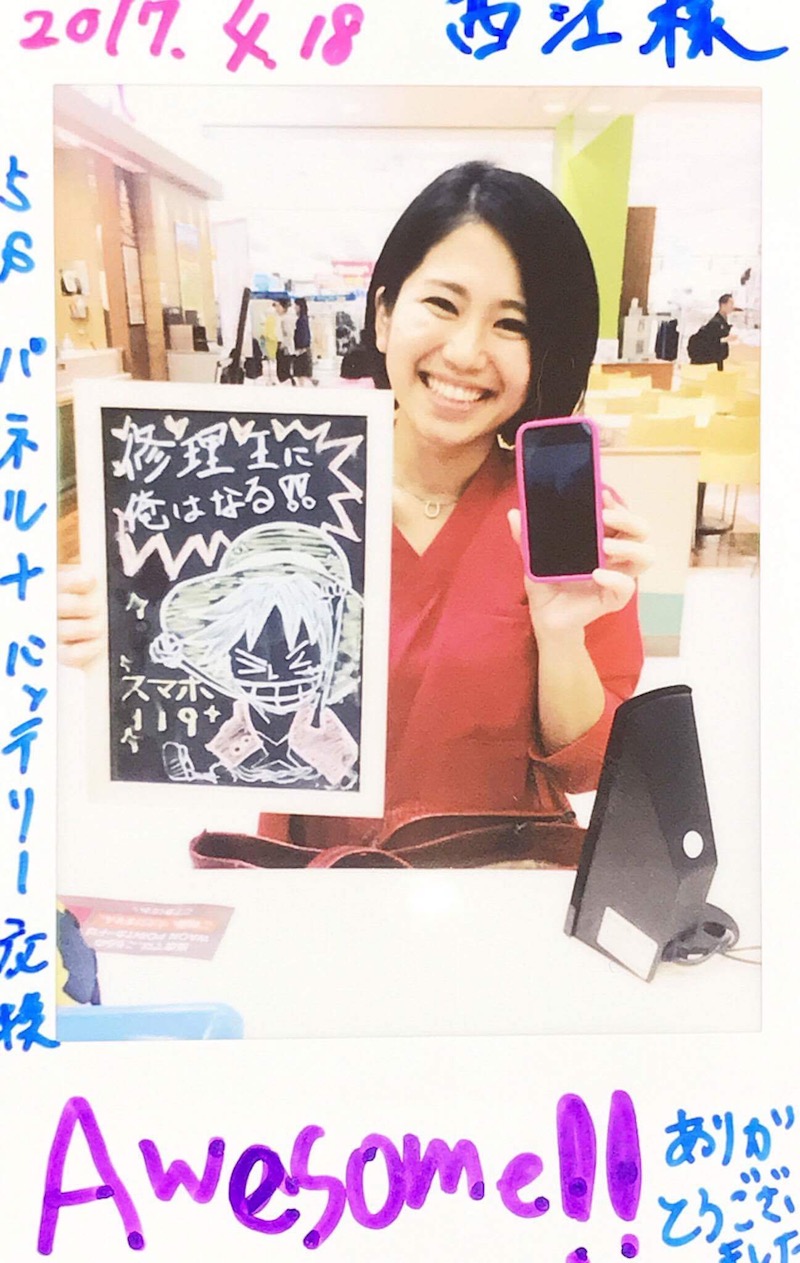 2017.4.18
西江様
5S パネル+バッテリー交換
修理王に
俺はなる!!
スマホ
119+
WAON POINTカードは
Awesome!!
ありが
とうござい
ました